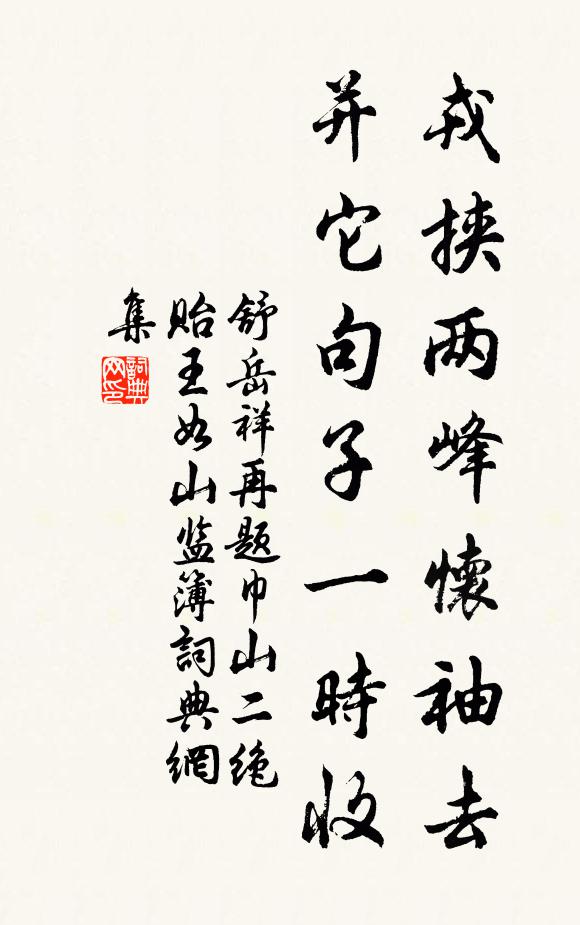 戎挟两峰懷袖去
并它句子一時收
舒岳祥再题巾山二绝
贻王如山监簿詞典網
集
詞典
网印